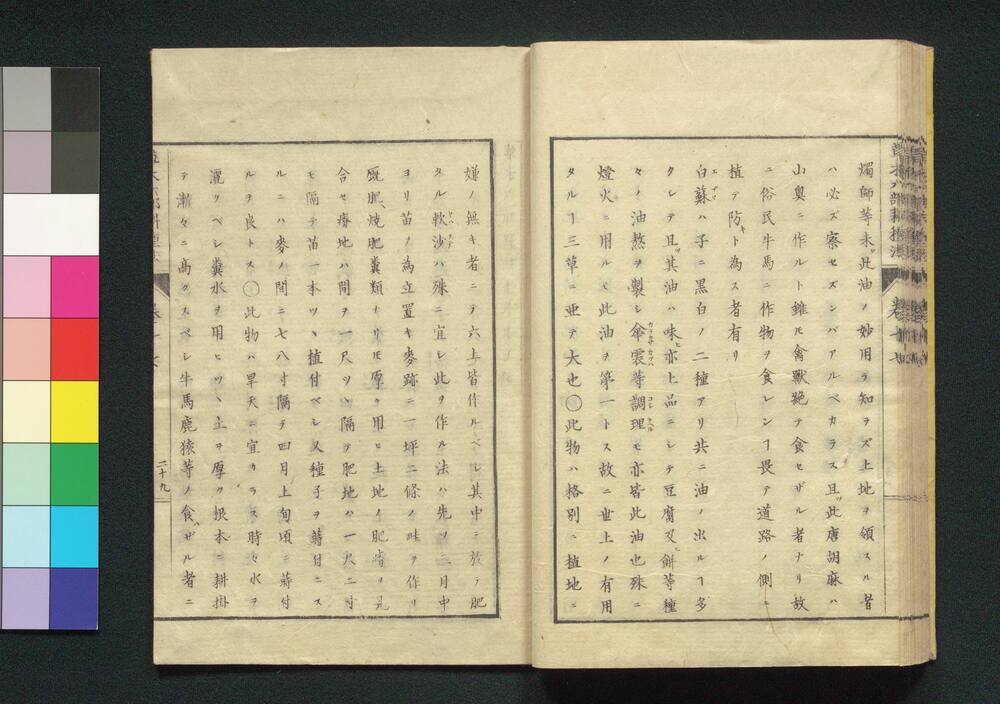 燭師等未ダ此油ノ妙用ヲ知ラズ土地ヲ領スル者
ハ必ズ察セズンバアルベカラス且ツ此唐胡麻ハ
山奥ニ作ルト雖モ禽獣絶テ食セザル者ナリ故
ニ俗民牛馬ニ作物ヲ食レンヿ畏テ道路ノ側ニ
植テ防キト為ス者有リ
白蘇ハ子ニ黒白ノ二種アリ共ニ油ノ出ルヿ多
クレテ且ツ其油ハ味ヒ亦上品ニレテ豆腐及ヒ餅等種
々ノ油熬ヲ製レ傘雲等調理モ亦皆此油也殊ニ
燈火ニ用ルモ此油ヲ第一トス故ニ世上ノ有用
タルヿ三草ニ亜テ大也〇此物ハ格別ニ植地ニ
嫌ノ無キ者ニテ六土皆作ルベレ其中ニ放テ肥
タル軟沙ハ殊ニ宜レ此ヲ作ル法ハ先ツ二月中
ヨリ苗ノ為立置キ麥跡ニ一坪二條ノ畦ヲ作リ
厩肥、焼肥糞類ナリモ厚ク用ヒ土地ノ肥瘠ヲ見
合セ瘠地ハ間ヲ一尺ツヽ隔テ肥地ハ一尺二寸
モ隔テ苗一本ツヽ植付ベレ又種子ヲ蒔付ニス
ルニハ麥ノ間ニ七八寸隔テ四月上旬頃ニ蒔付
ルヲ良トス〇此物ハ旱天ニ宜カラス時々水ヲ
灑クベレ糞水ヲ用ヒツヽ土ヲ厚ク根本ニ耕掛
テ漸々ニ高クスベレ牛馬鹿猿等ノ食ハザル者ニ
二十九